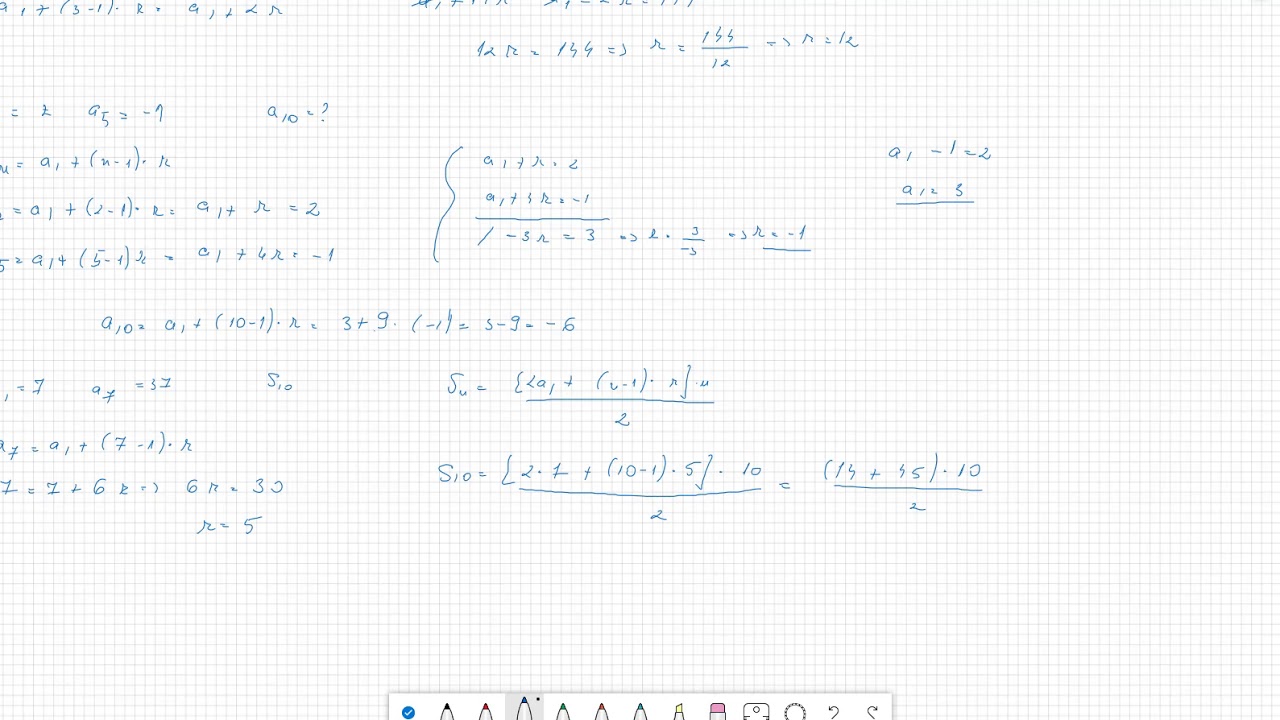 a₁ + (3-1)· r = a₁ + 2r
12r = 144 => r = 144/12 => r = 12
= 2 a₅ = -1 a₁₀ = ?
= a₁ + (n-1)· r
= a₁ + (2-1)· r = a₁ + r = 2
5 = a₁ + (5-1) r = a₁ + 4r = -1
a₁ + r = 2
a₁ + 4r = -1
/ -3r = 3 => r = 3/-3 => r = -1
a₁ -1 = 2
a₁ = 3
a₁₀ = a₁ + (10-1)· r = 3 + 9 · (-1) = 3 - 9 = -6
₁ = 7 a₇ = 37 S₁₀
a₇ = a₁ + (7-1)· r
7 = 7 + 6r => 6r = 30
r = 5
Sₙ = [2a₁ + (n-1)· r]·n / 2
S₁₀ = [2·7 + (10-1)·5]·10 / 2 = (14 + 45)·10 / 2